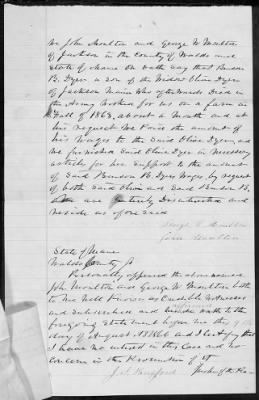 We John Moulton and George W Moulton
of Jackson in the County of Waldo and
State of Maine On oath say that Benson
B. Dyer a son of the Widow Olivia Dyer
of Jackson Maine Who afterwards Died in
the Army Worked for us on a farm in
Fall of 1863, about a Month and at
his request We Paid the amount of
his Wages to the Said Olivia Dyer, and
we furnished Said Olivia Dyer in Necessary
articles for her Support to the amount
of Said B. Dyers Wages, by request
of both Said Olivia and Said B.
are entirely Disinterested and
reside as aforesaid
George W Moulton
John Moulton
State of Maine
Waldo County ss
Personally appeared the above named
John Moulton and George W Moulton both
to me Well Known as Credible Witnesses
and Subscribed and made oath to the
foregoing Statement before me this 9
day of August 1866 and I Certify that
I have no interest in this Case and no
concern in the Prosecution of it
Justice of the Peace